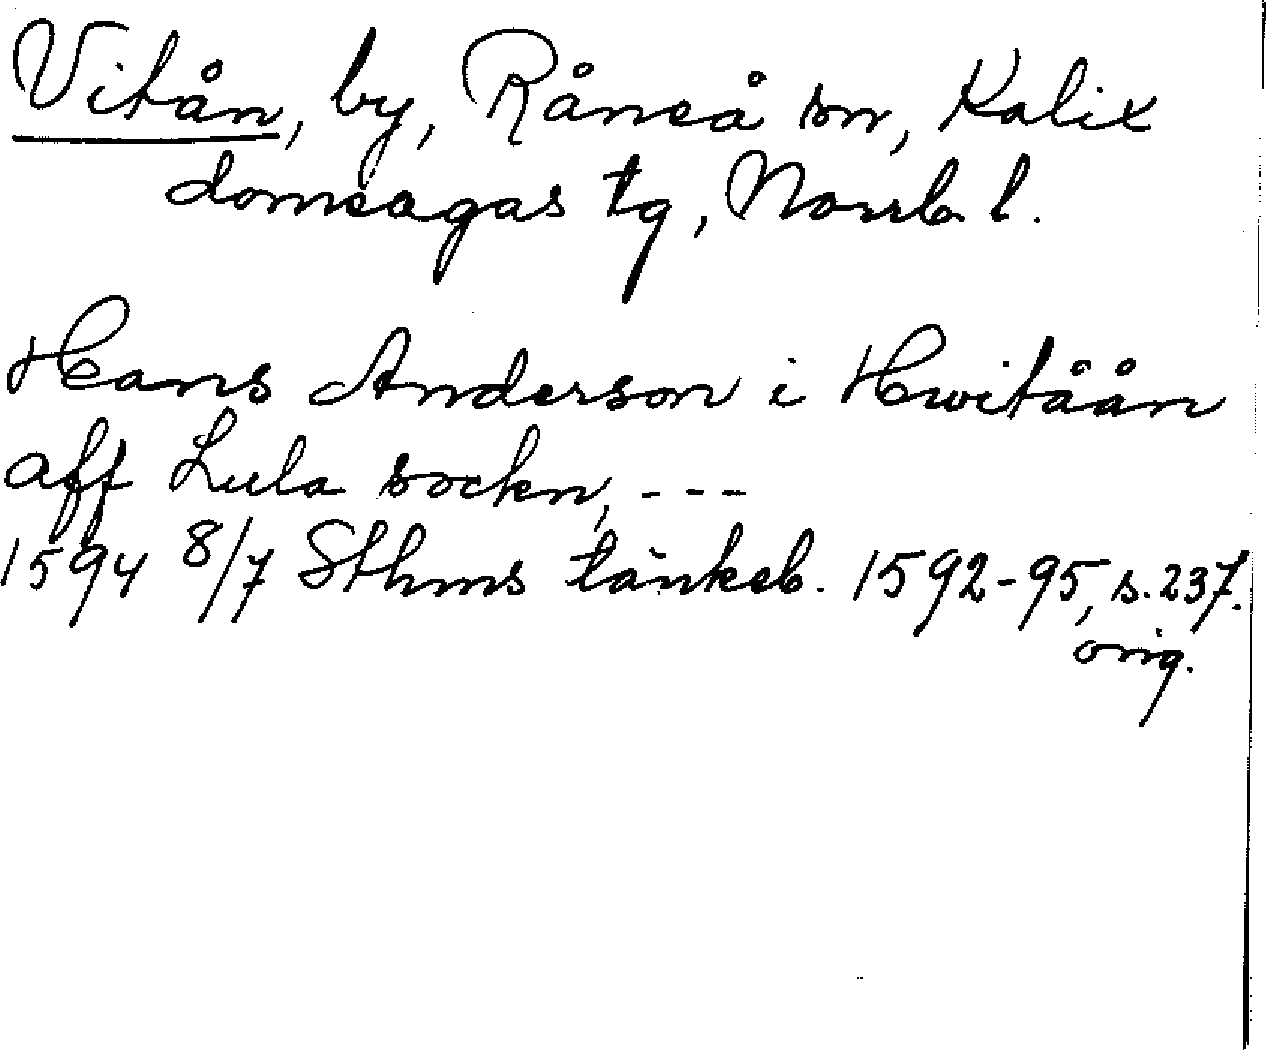 Vitån, by, Råneå sn, Kalix
domsagas tg, Norrb. l.
Hans Anderson i Hwitåån
aff Lula sockn, ---
1594 8/7 Sthms tänkeb. 1592-95, s. 237.
orig.